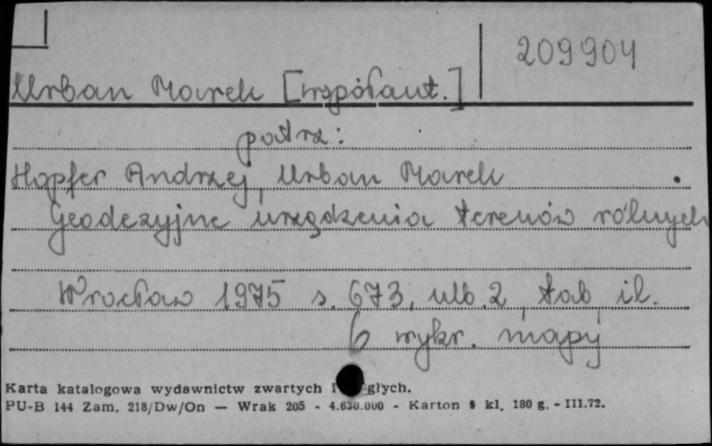 209904
Urban Marek [współaut.]
patrz:
Hopfer Andrzej, Urban Marek
Geodezyjne urządzenia terenów rolnych
Wrocław 1975 s. 673, ulb. 2, tab, il.
6 wykr. mapy
Karta katalogowa wydawnictw zwartych i ciągłych.
PU-B 144 Zam. 218/Dw/On — Wrak 205 - 4.630.000 - Karton kl. 180 g. - III.72.